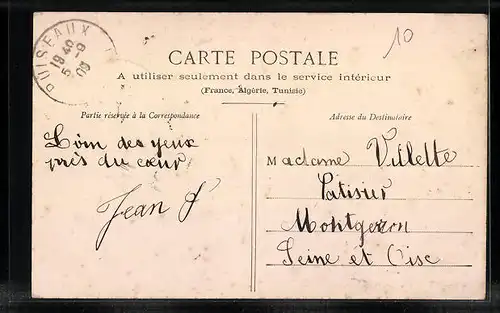 PUISEAUX
19 40
5 -9
10
CARTE POSTALE
A utiliser seulement dans le service intérieur
(France, Algérie, Tunisie)
Partie réservée à la Correspondance
Adresse du Destinataire
Loin des yeux
près du cœur
Jean
Madame Villette
Patisier
Montgeron
Seine et Oise